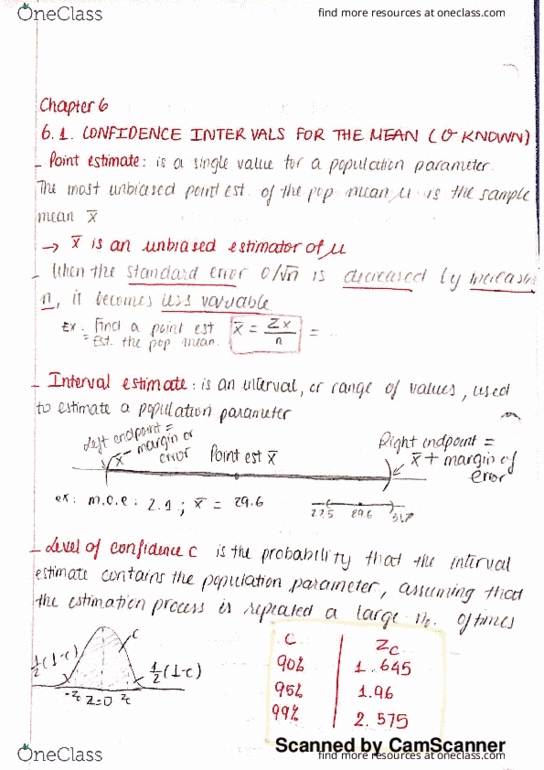 OneClass
find more resources at oneclass.com
Chapter 6
6.1. CONFIDENCE INTERVALS FOR THE MEAN (σ KNOWN)
- Point estimate: is a single value for a population parameter.
The most unbiased point est. of the pop mean μ is the sample
mean x̄
→ x̄ is an unbiased estimator of μ
- When the standard error σ/√n is decreased by increasin
n, it becomes less variable
Ex: Find a point est x̄ = Σx/n = ...
= Est. the pop mean.
- Interval estimate: is an interval, or range of values, used
to estimate a population parameter
Left endpoint =
x̄ - margin or
error
Point est x̄
Right endpoint =
x̄ + margin of
error
ex: m.o.e: 2.1 ; x̄ = 29.6
27.5 29.6 31.7
- Level of confidence c is the probability that the interval
estimate contains the population parameter, assuming that
the estimation process is repeated a large no. of times
½(1-c) c ½(1-c)
-zc z=0 zc
C Zc
90% 1.645
95% 1.96
99% 2.575
Scanned by CamScanner
OneClass
find more resources at oneclass.com